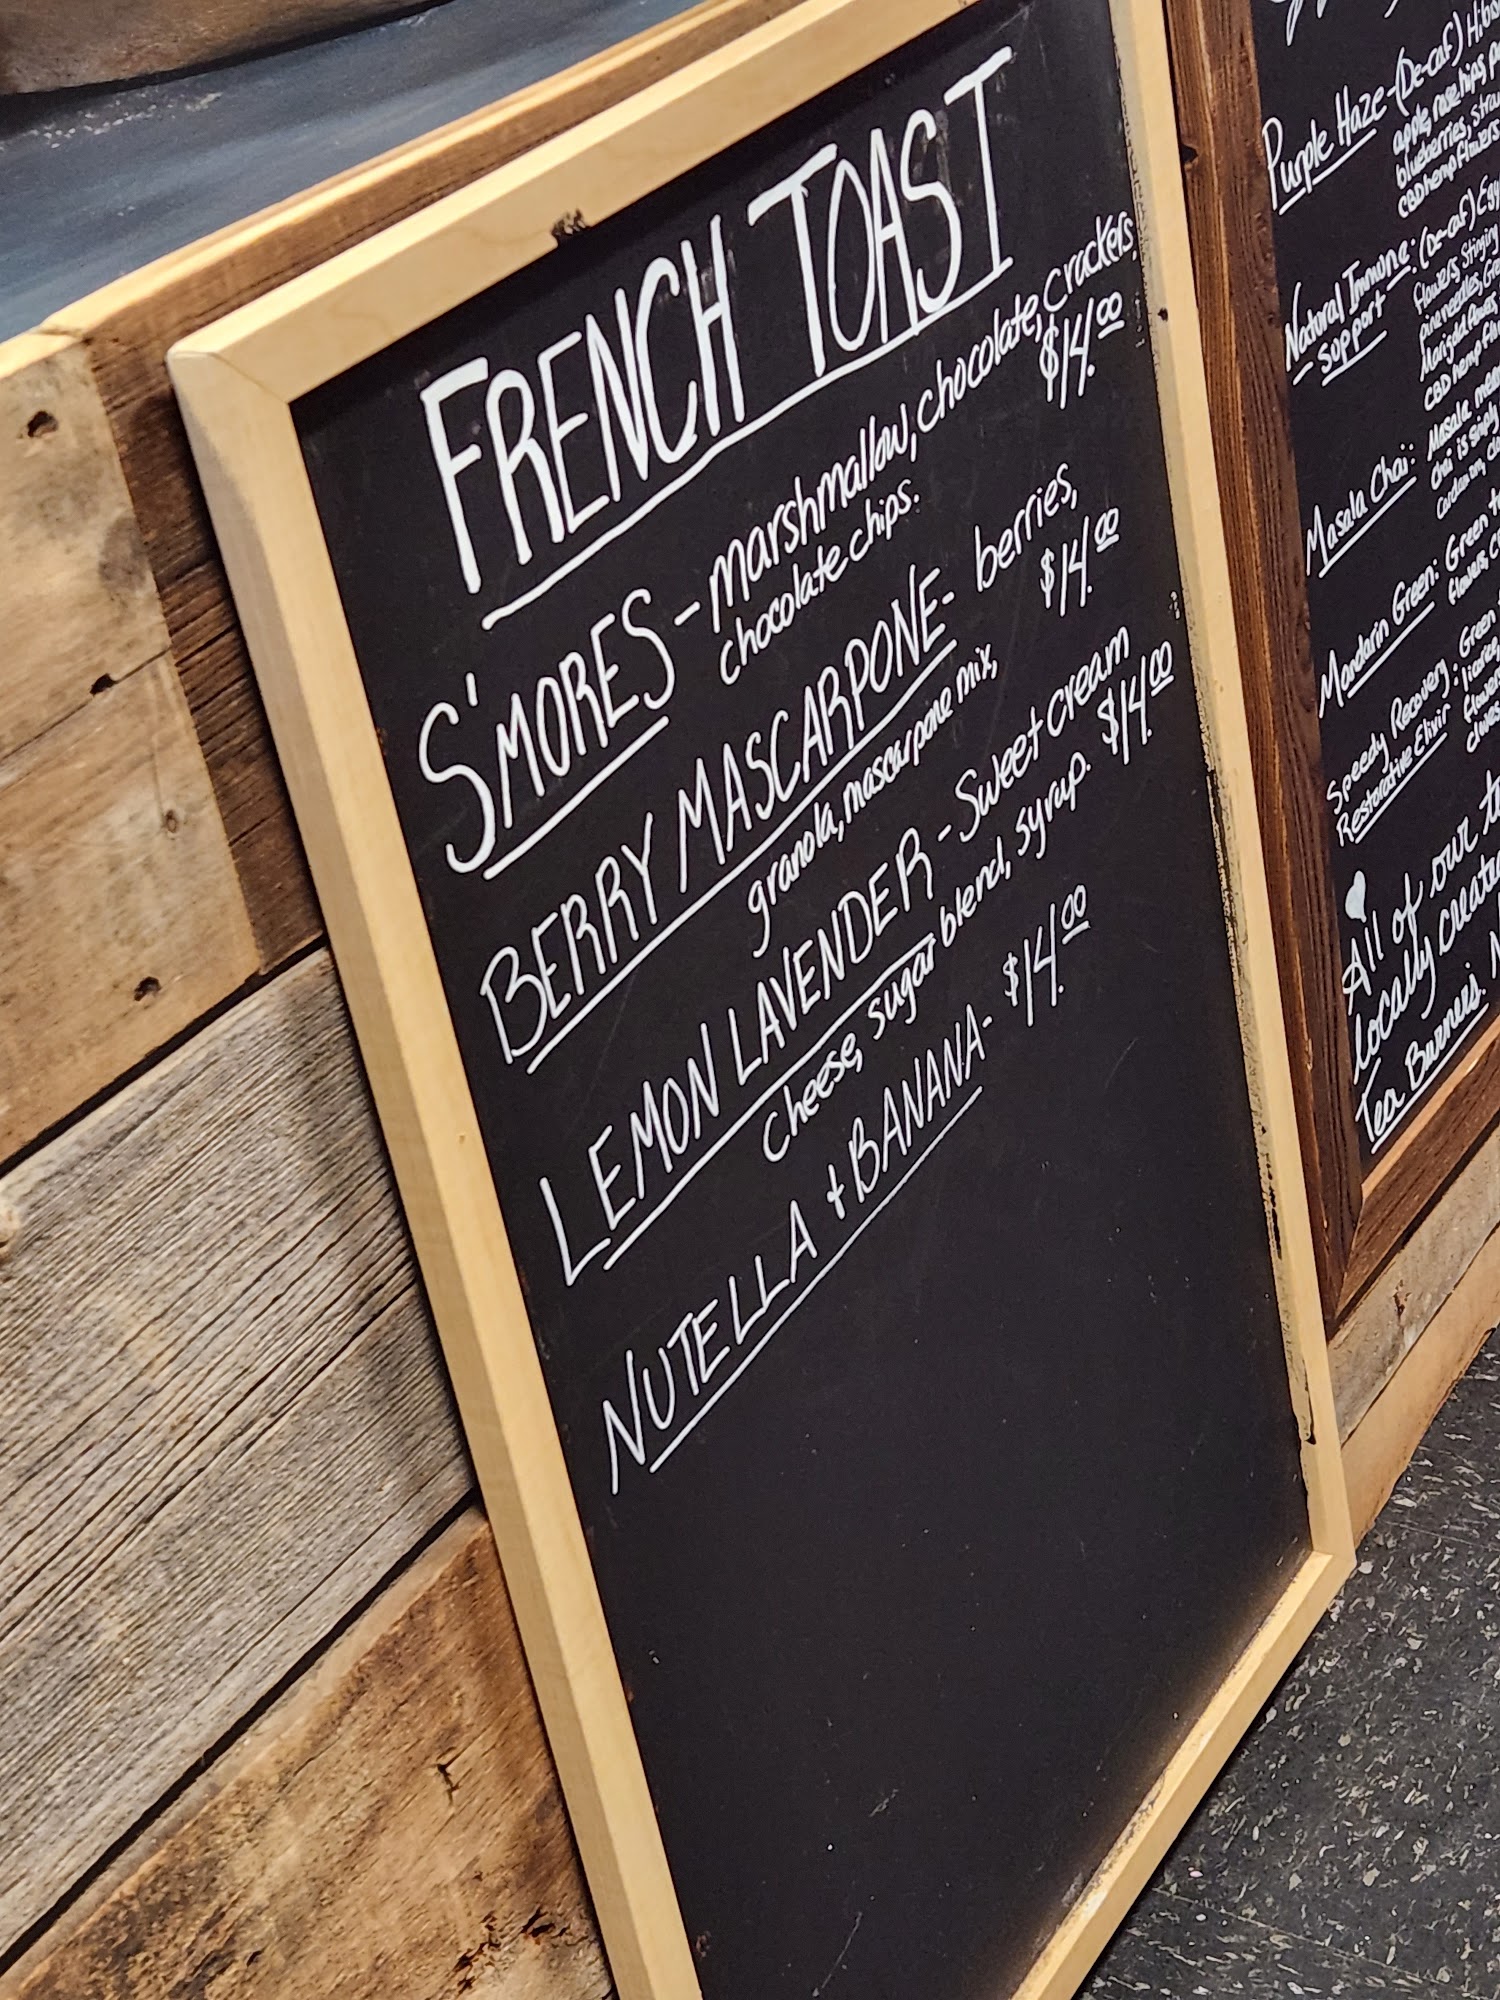 FRENCH TOAST
S'MORES - marshmallow, chocolate, crackers,
chocolate chips. $14.00
BERRY MASCARPONE- berries,
granola, mascarpone mix, $14.00
LEMON LAVENDER - Sweet cream
cheese, sugar blend, syrup. $14.00
NUTELLA + BANANA- $14.00
Purple Haze - (De-caf)
apple, rose hips,
blueberries,
CBD hemp flowers
Natural Immune: (De-caf)
Support flowers, Stinging
pine needles,
Marigold flowers,
CBD hemp
Masala Chai: Masala
chai is simply
Cardamom,
Mandarin Green: Green
flowers,
Speedy Recovery: Green
Restorative Elixir licorice,
All of our
locally
Tea Burners.